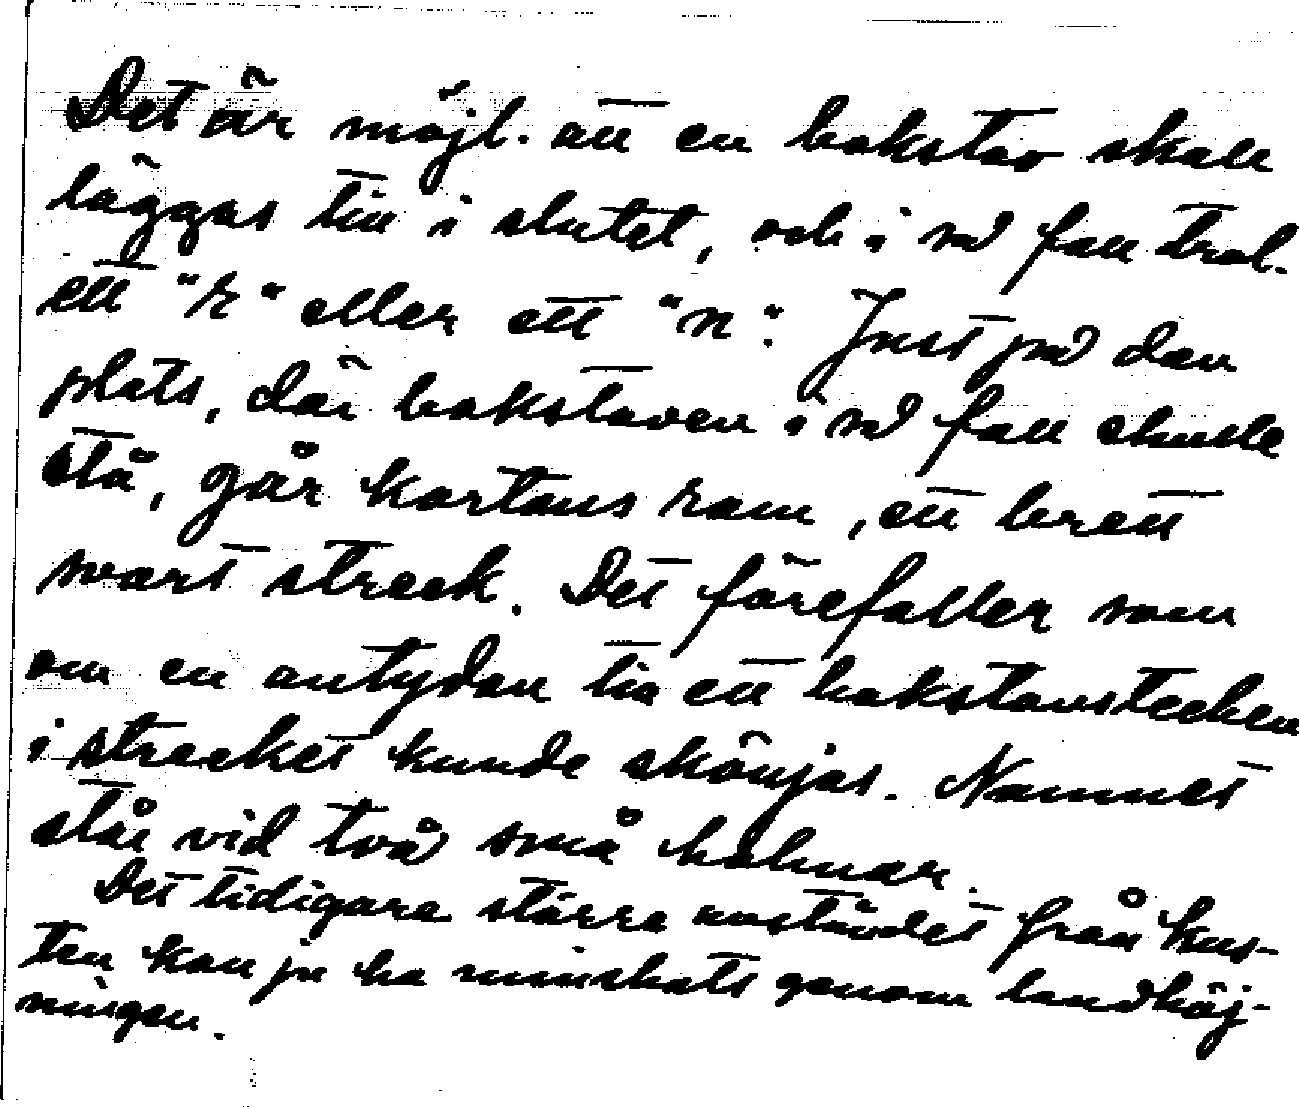 Det är möjl. att en bokstav skall
läggas till i slutet, och i så fall trol.
ett "r" eller ett "n". Just på den
plats, där bokstaven i så fall skulle
stå, går kartans ram, ett brett
svart streck. Det förefaller som
om en antydan till ett bokstavstecken
i strecket kunde skönjas. Namnet
står vid två små holmar.
Det tidigare större avståndet från kus-
ten kan ju ha minskats genom landhöj-
ningen.